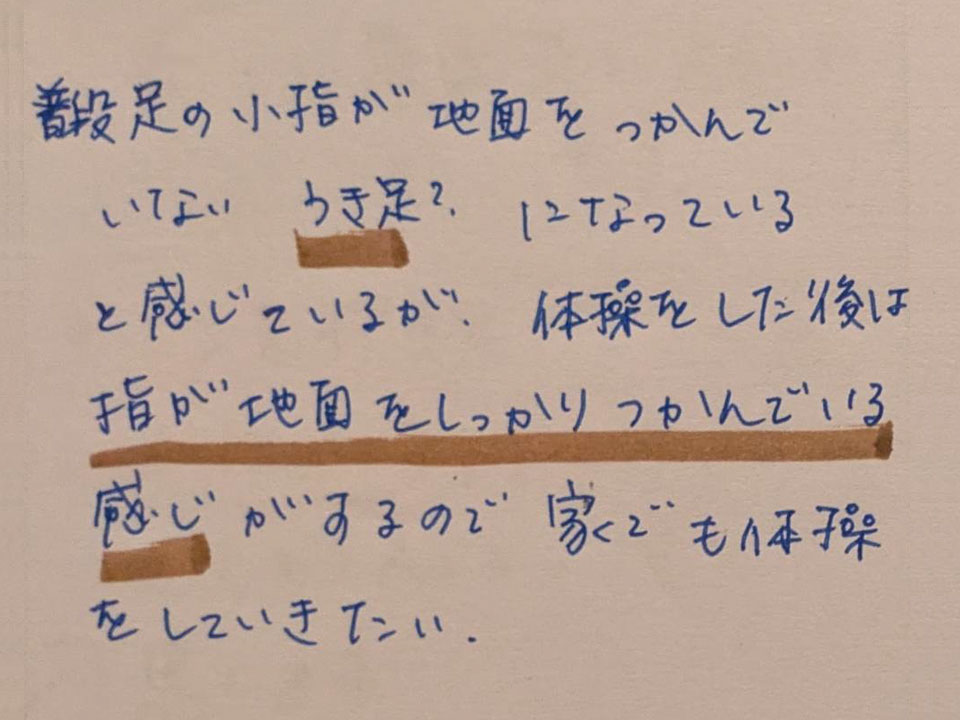 普段足の小指が地面をつかんで
いない うき足?. になっている
と感じているが、体操をした後は
指が地面をしっかりつかんでいる
感じがするので家でも体操
をしていきたい.